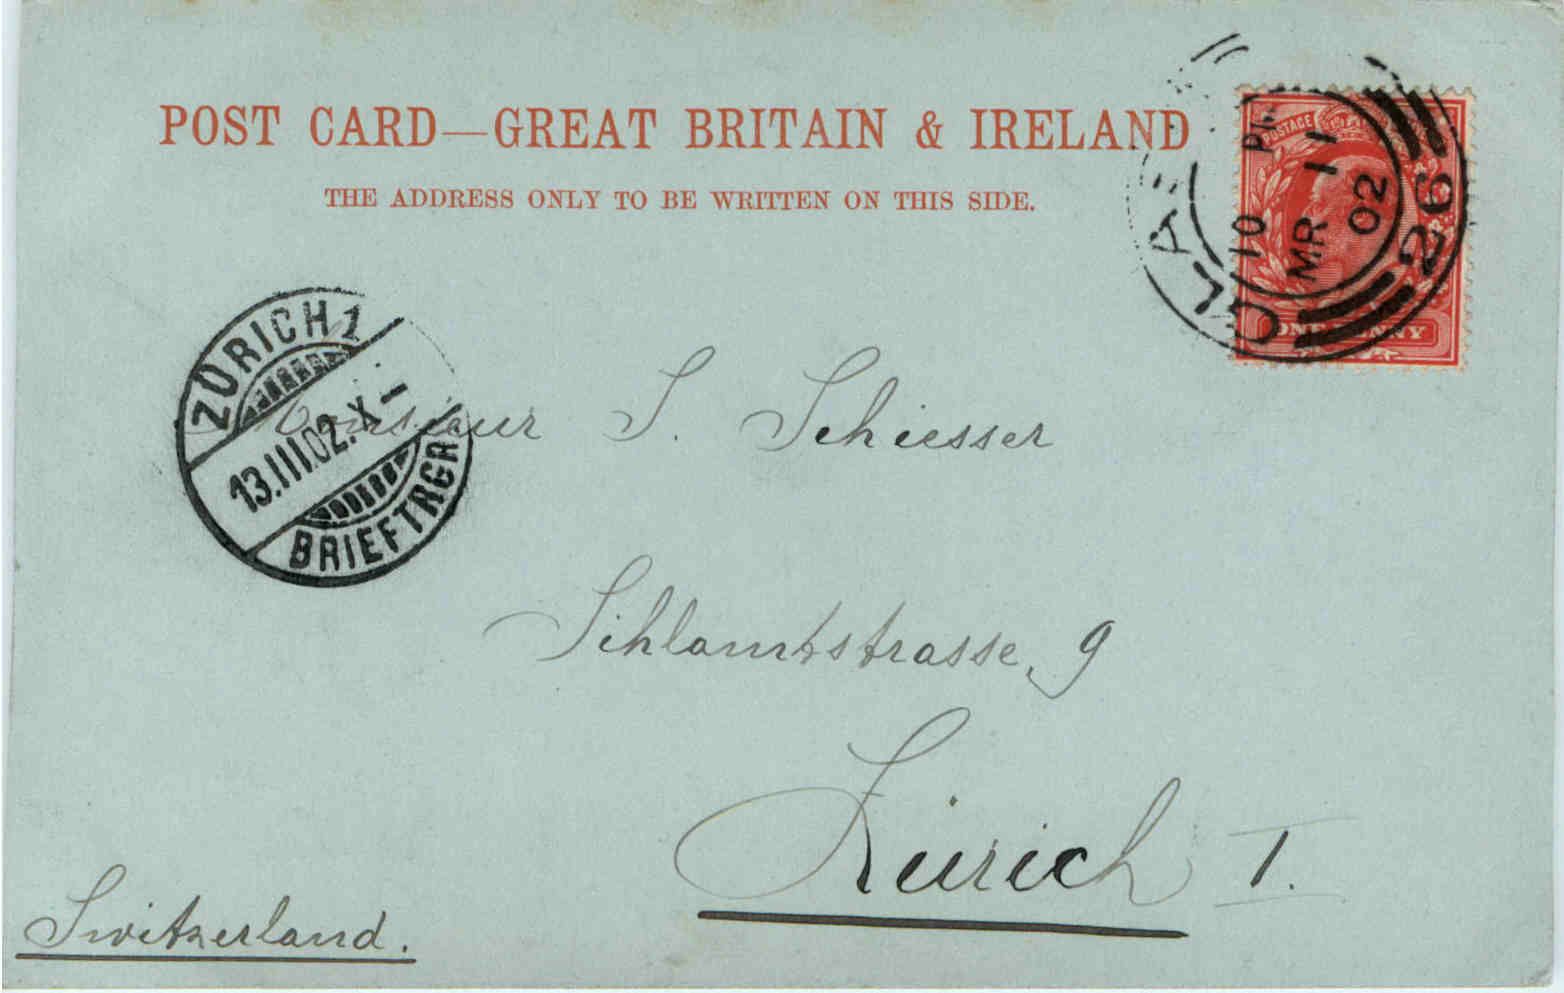 POST CARD—GREAT BRITAIN & IRELAND
THE ADDRESS ONLY TO BE WRITTEN ON THIS SIDE.
POSTAGE
ONE PENNY
10 PM
MR 11
02
26
ZÜRICH 1
13.III.02.X–
BRIEFTRGR
Monsieur S. Schiesser
Sihlamtstrasse, 9
Zürich I.
Switzerland.